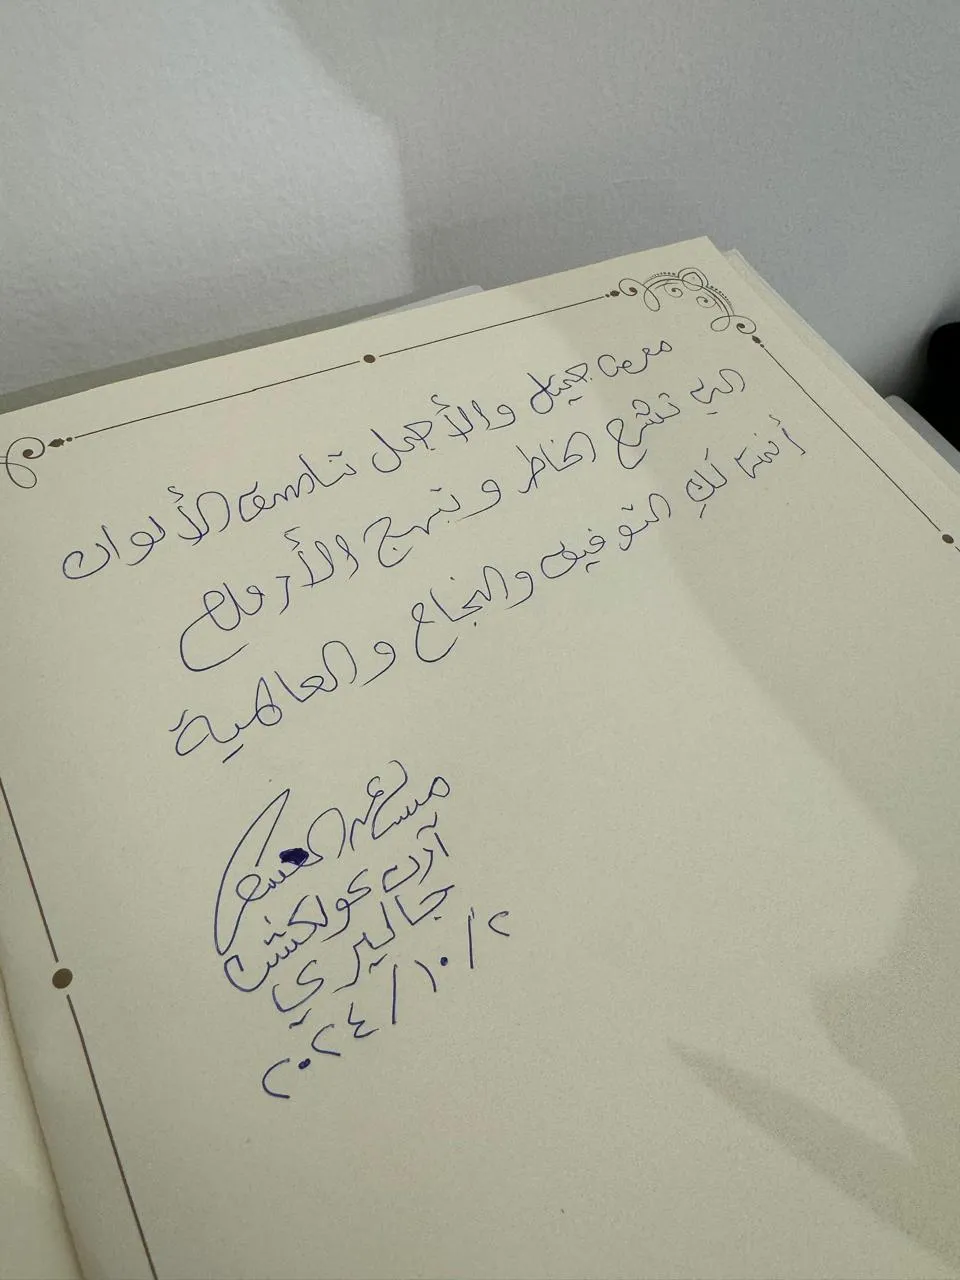 معرض جميل والأجمل تناسق الألوان
التي تشرح الخاطر وتبهج الأرواح
أتمنى لك التوفيق والنجاح والعالمية
آرت كولكشن
جاليري
٢٠٢٤/١٠/٢